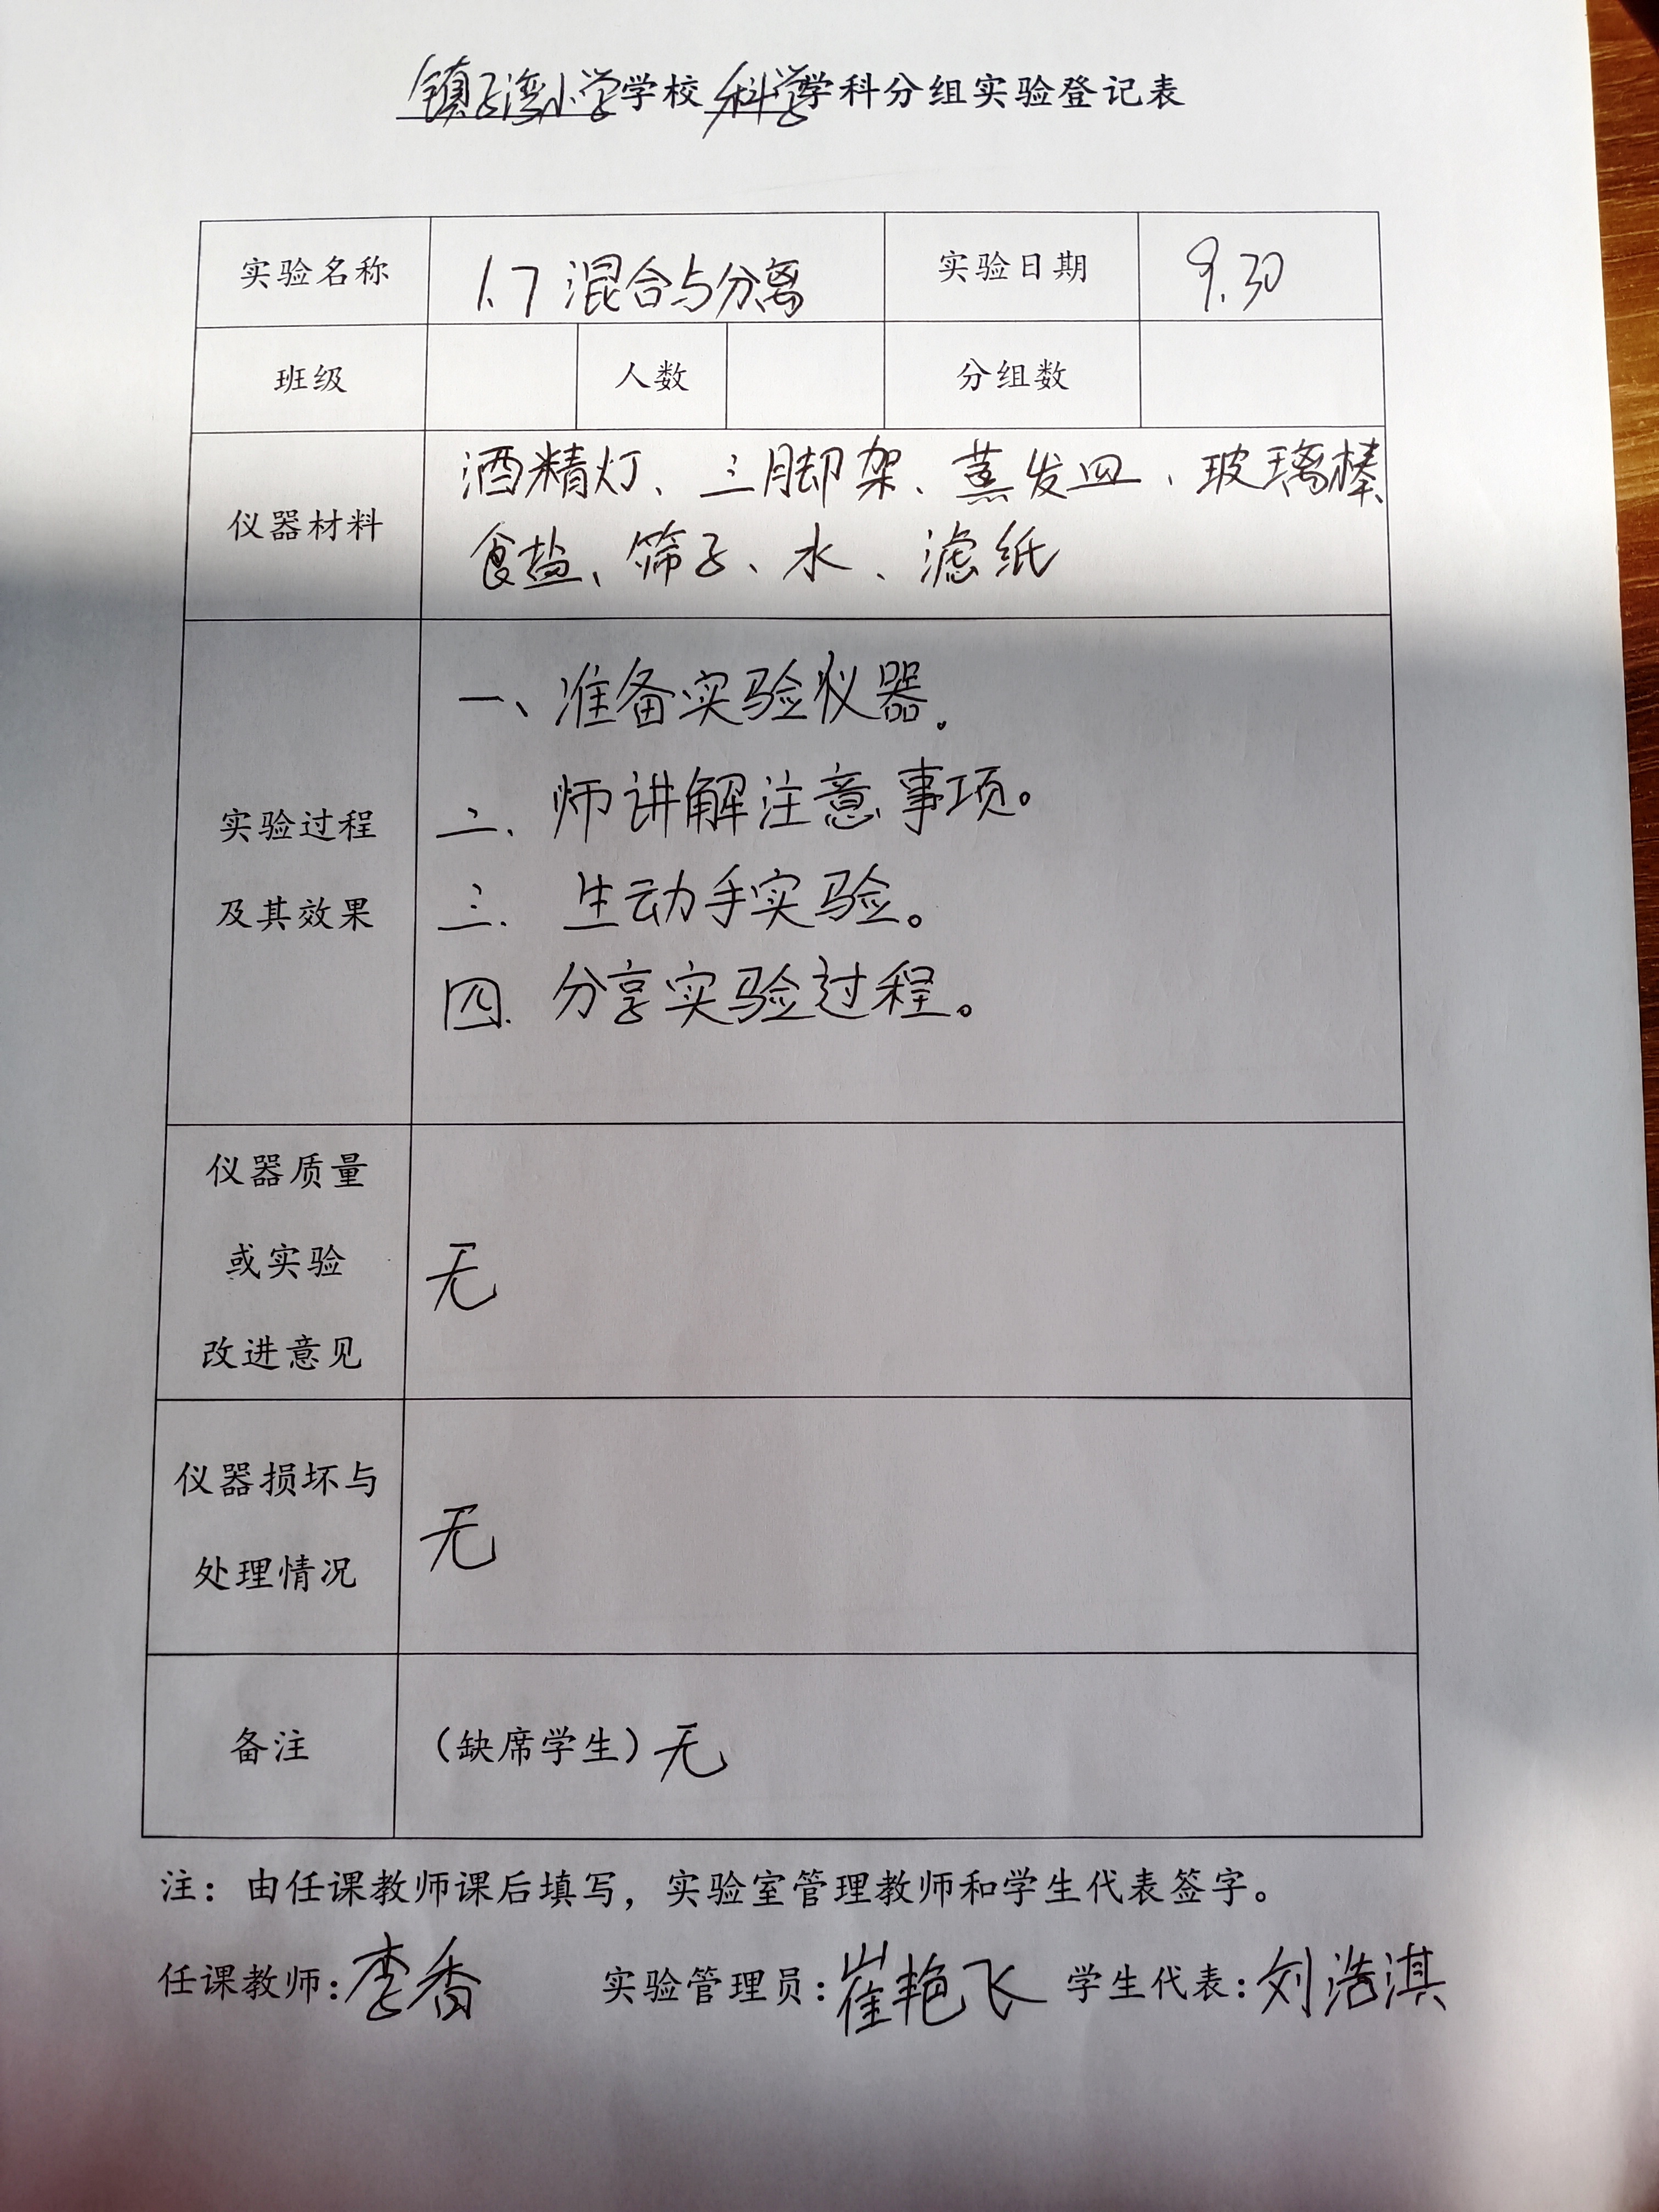 镇子湾小学学校科学学科分组实验登记表
实验名称 1.7 混合与分离 实验日期 9.30
班级 人数 分组数
仪器材料
酒精灯、三脚架、蒸发皿、玻璃棒
食盐、筛子、水、滤纸
实验过程
及其效果
一、准备实验仪器。
二、师讲解注意事项。
三、生动手实验。
四、分享实验过程。
仪器质量
或实验
改进意见
无
仪器损坏与
处理情况
无
备注 (缺席学生) 无
注：由任课教师课后填写，实验室管理教师和学生代表签字。
任课教师:李香 实验管理员:崔艳飞 学生代表:刘浩淇